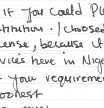 if you could p
stitution. I choosed
cense, because it
vices have in Nige
your requirement
oonest